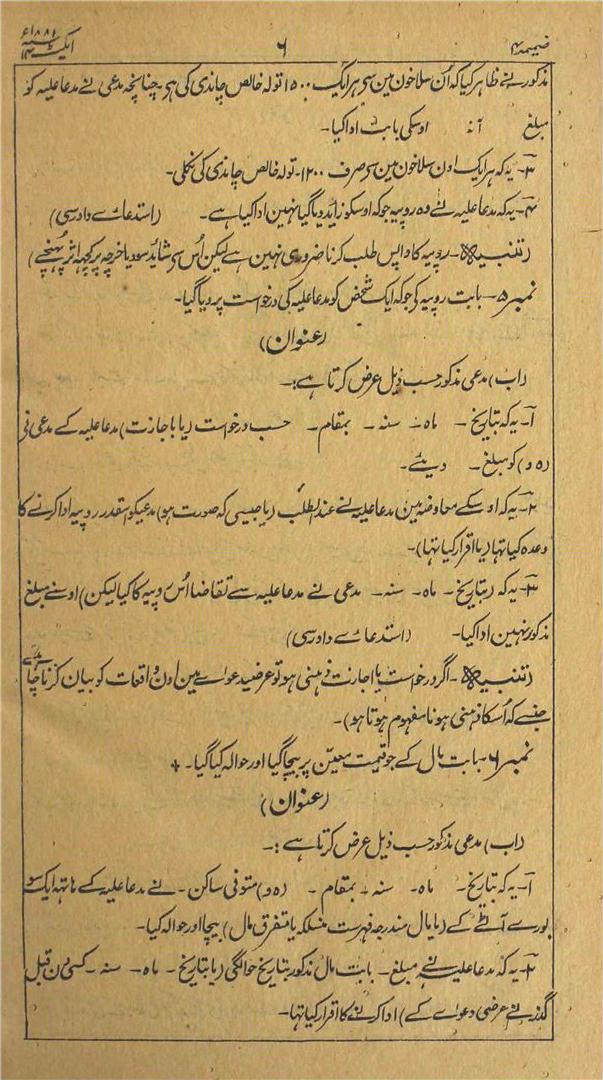 ضمیمہ ۴ ۶ ایکٹ ۱۴ سنہ ۱۸۸۲ء
مذکور نے ظاہر کیا کہ اُن سلاخون مین سی ہر ایک ۱۵۰۰ تولہ خالص چاندی کی ہی چنانچہ مدعی نے مدعا علیہ کو
مبلغ آنہ اوسکی بابت ادا کیا۔
۳۔ یہ کہ ہر ایک اون سلاخون مین سی صرف ۱۲۰۰۔ تولہ خالص چاندی کی نکلی۔
۴۔ یہ کہ مدعا علیہ نے وہ روپیہ جو کہ اوسکو زاید دیا گیا نہین ادا کیا ہے۔ (استدعاے دادرسی)
(تنبیہ۔ روپیہ کا واپس طلب کرنا ضروری نہین ہے لیکن اُس سی شاید سود یا خرچہ پر کچہہ اثر پُہنچے)
نمبر ۵۔ بابت روپیہ کی جو کہ ایک شخص کو مدعا علیہ کی درخواست پر دیا گیا۔
(عنوان)
(اب) مدعی مذکور حسب ذیل عرض کرتا ہے:۔
۱۔ یہ کہ بتاریخ ۔ ماہ ۔ سنہ ۔ بمقام ۔ حسب درخواست (یا باجازت) مدعا علیہ کے مدعی نی
(ہ و) کو مبلغ ۔ دیئے۔
۲۔ یہ کہ اوسکے معاوضہ مین مدعا علیہ نے عند الطلب (یا جیسی کہ صورت ہو) مدعیکو اسقدر روپیہ ادا کرنے کا
وعدہ کیا تہا (یا اقرار کیا تہا)۔
۳۔ یہ کہ (بتاریخ ۔ ماہ ۔ سنہ ۔ مدعی نے مدعا علیہ سے تقاضا اُس روپیہ کا کیا لیکن) اوسنے مبلغ
مذکور نہین ادا کیا۔ (استدعاے دادرسی)
(تنبیہ۔ اگر درخواست یا اجازت ذہنی ہو تو عرضیدعوے مین اون واقعات کو بیان کرنا چاہیے
جنسے کہ اُسکا ذہنی ہونا مفہوم ہوتا ہو)۔
نمبر ۶۔ بابت مال کے جو قیمت معین پر بیچا گیا اور حوالہ کیا گیا۔
(عنوان)
(اب) مدعی مذکور حسب ذیل عرض کرتا ہے:۔
۱۔ یہ کہ بتاریخ ۔ ماہ ۔ سنہ ۔ بمقام ۔ (ہ و) متوفی ساکن ۔ نے مدعا علیہ کے ہاتہہ ایک سو
بورے آٹے کے (یا مال مندرجہ فہرست منسلکہ یا متفرق مال) بیچا اور حوالہ کیا۔
۲۔ یہ کہ مدعا علیہ نے مبلغ ۔ بابت مال مذکور بتاریخ حوالگی (یا بتاریخ ۔ ماہ ۔ سنہ ۔ کسی دن قبل
گذرنے عرضی دعوے کے) ادا کرنے کا اقرار کیا تہا۔